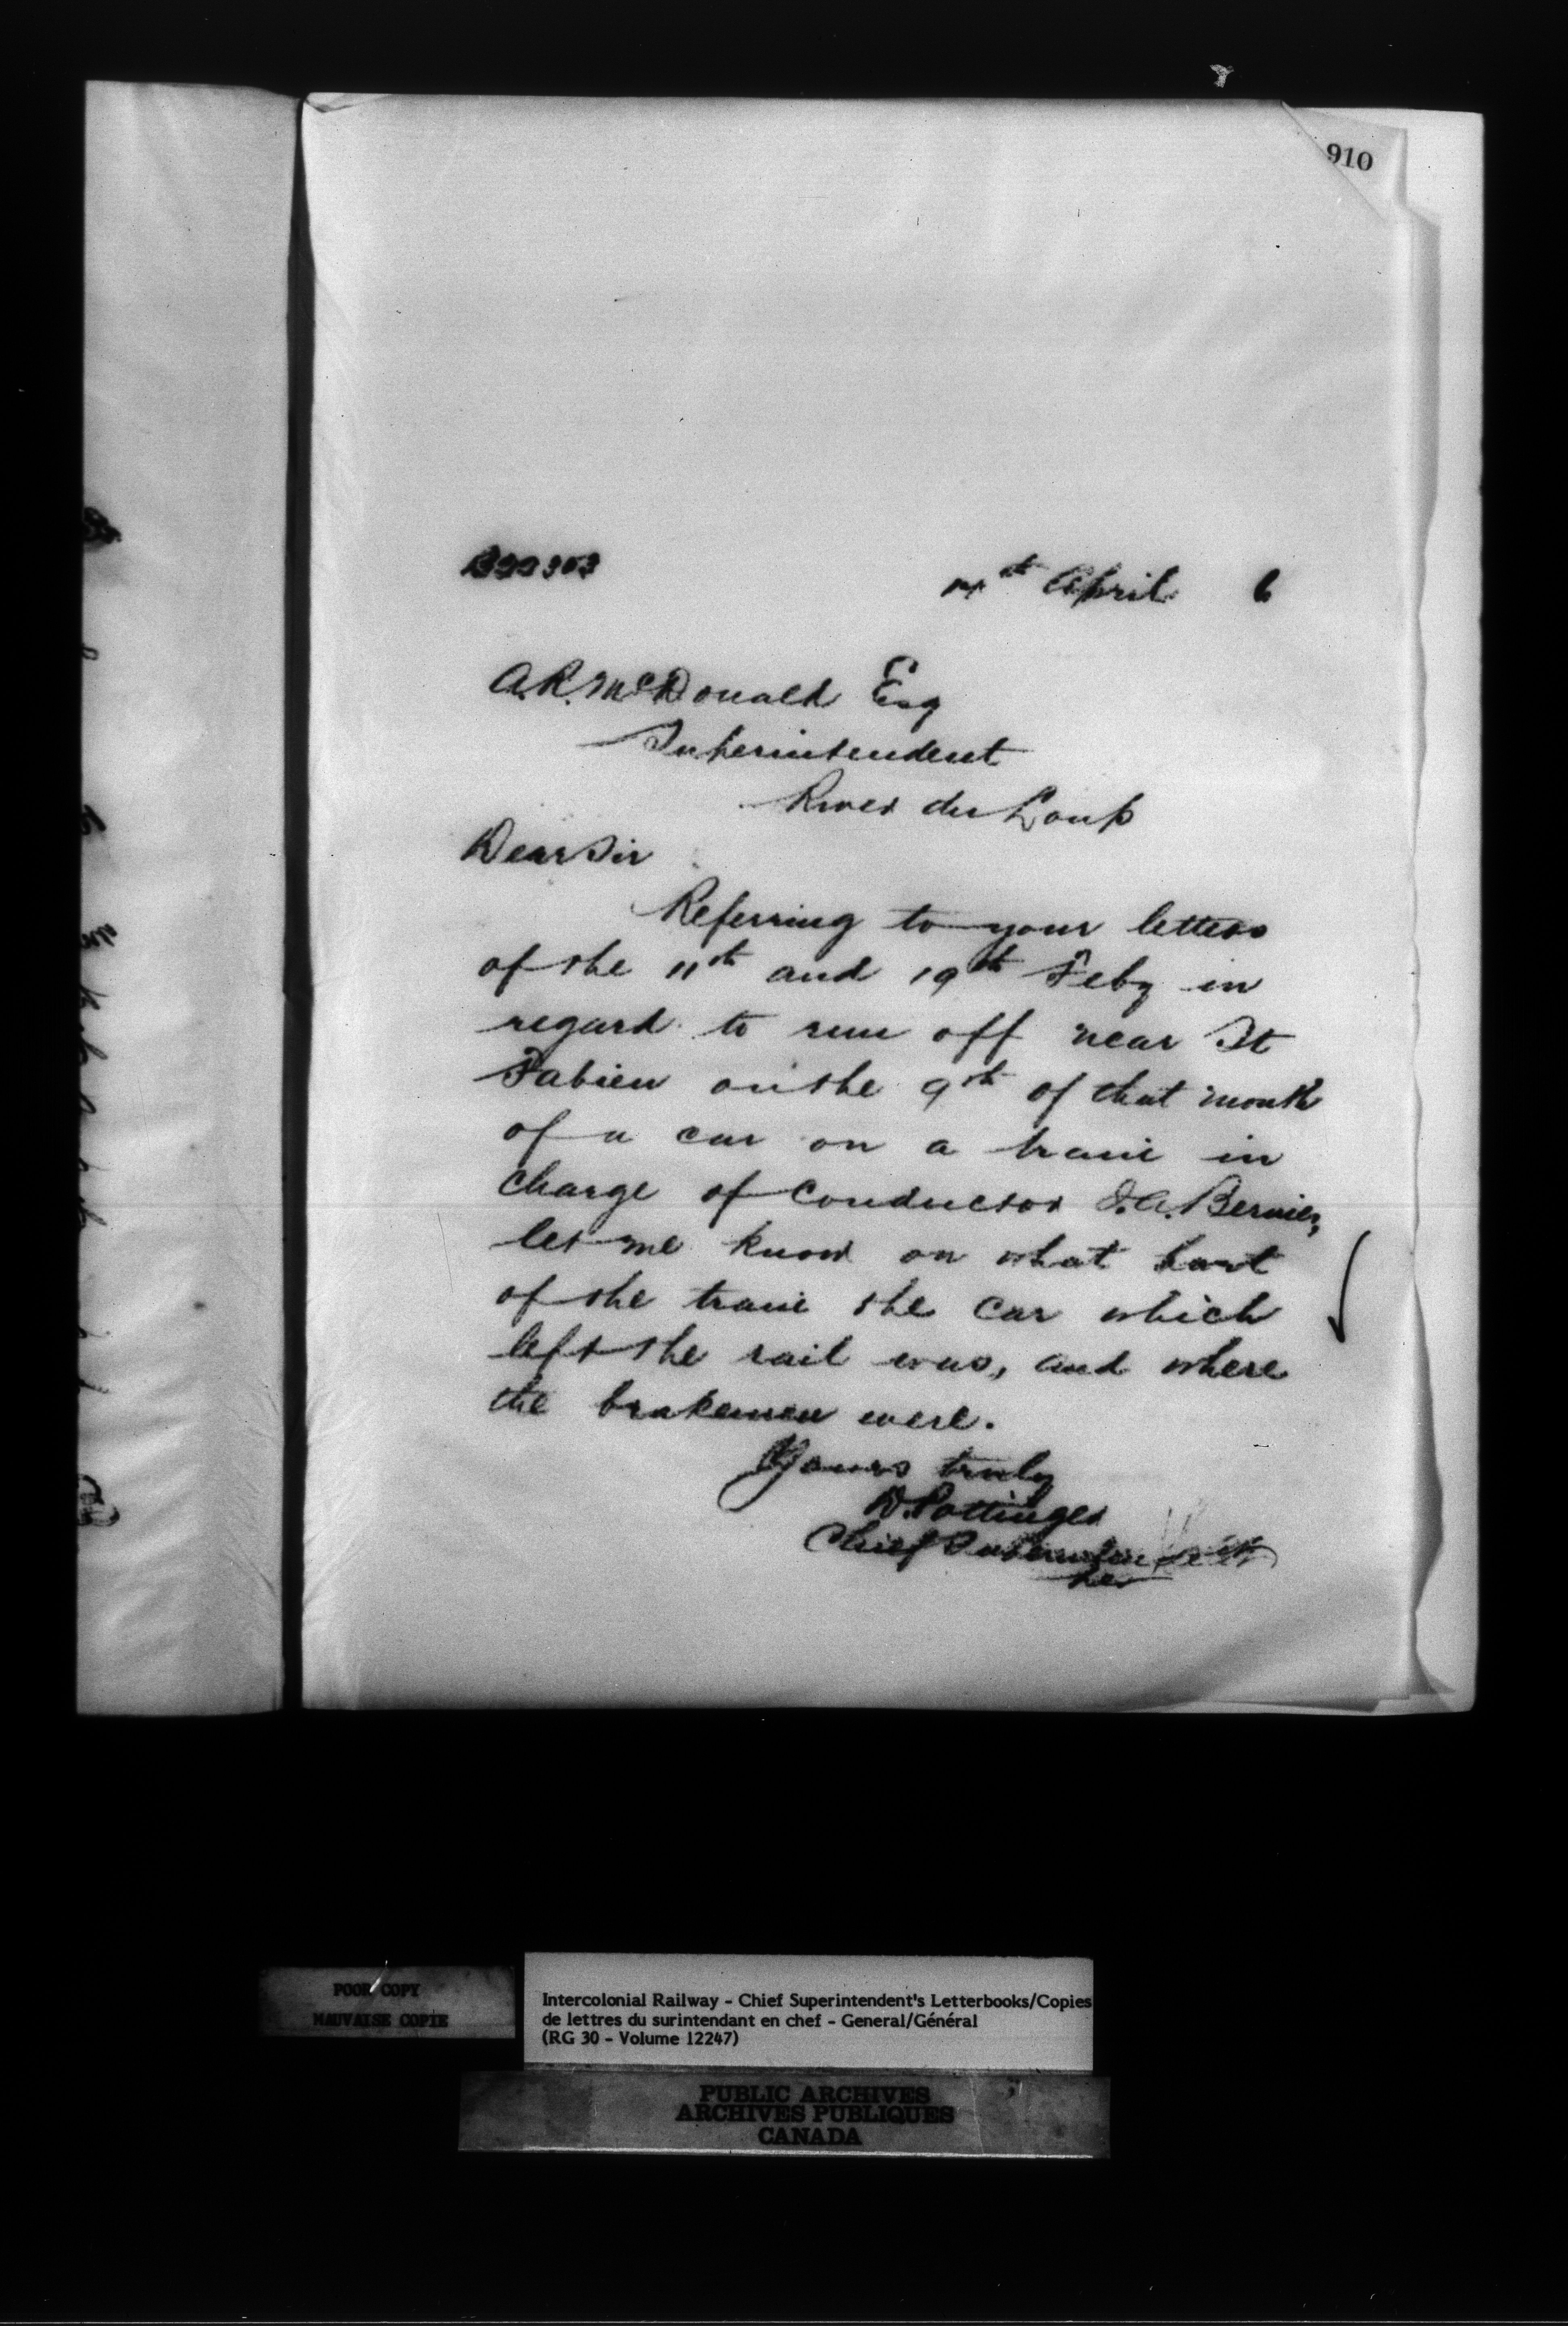 910
14th April 6
A.R. McDonald Esq
Superintendent
River du Loup
Dear Sir
Referring to your letters
of the 11th and 19th Feby in
regard to run off near St
Fabien on the 9th of that month
of a car on a train in
charge of Conductor J.A. Bernier,
let me know on what part
of the train the car which
left the rail was, and where
the brakemen were.
Yours truly
D. Pottinger
Chief Superintendent
POOR COPY
MAUVAISE COPIE
Intercolonial Railway - Chief Superintendent's Letterbooks/Copies
de lettres du surintendant en chef - General/Général
(RG 30 - Volume 12247)
PUBLIC ARCHIVES
ARCHIVES PUBLIQUES
CANADA